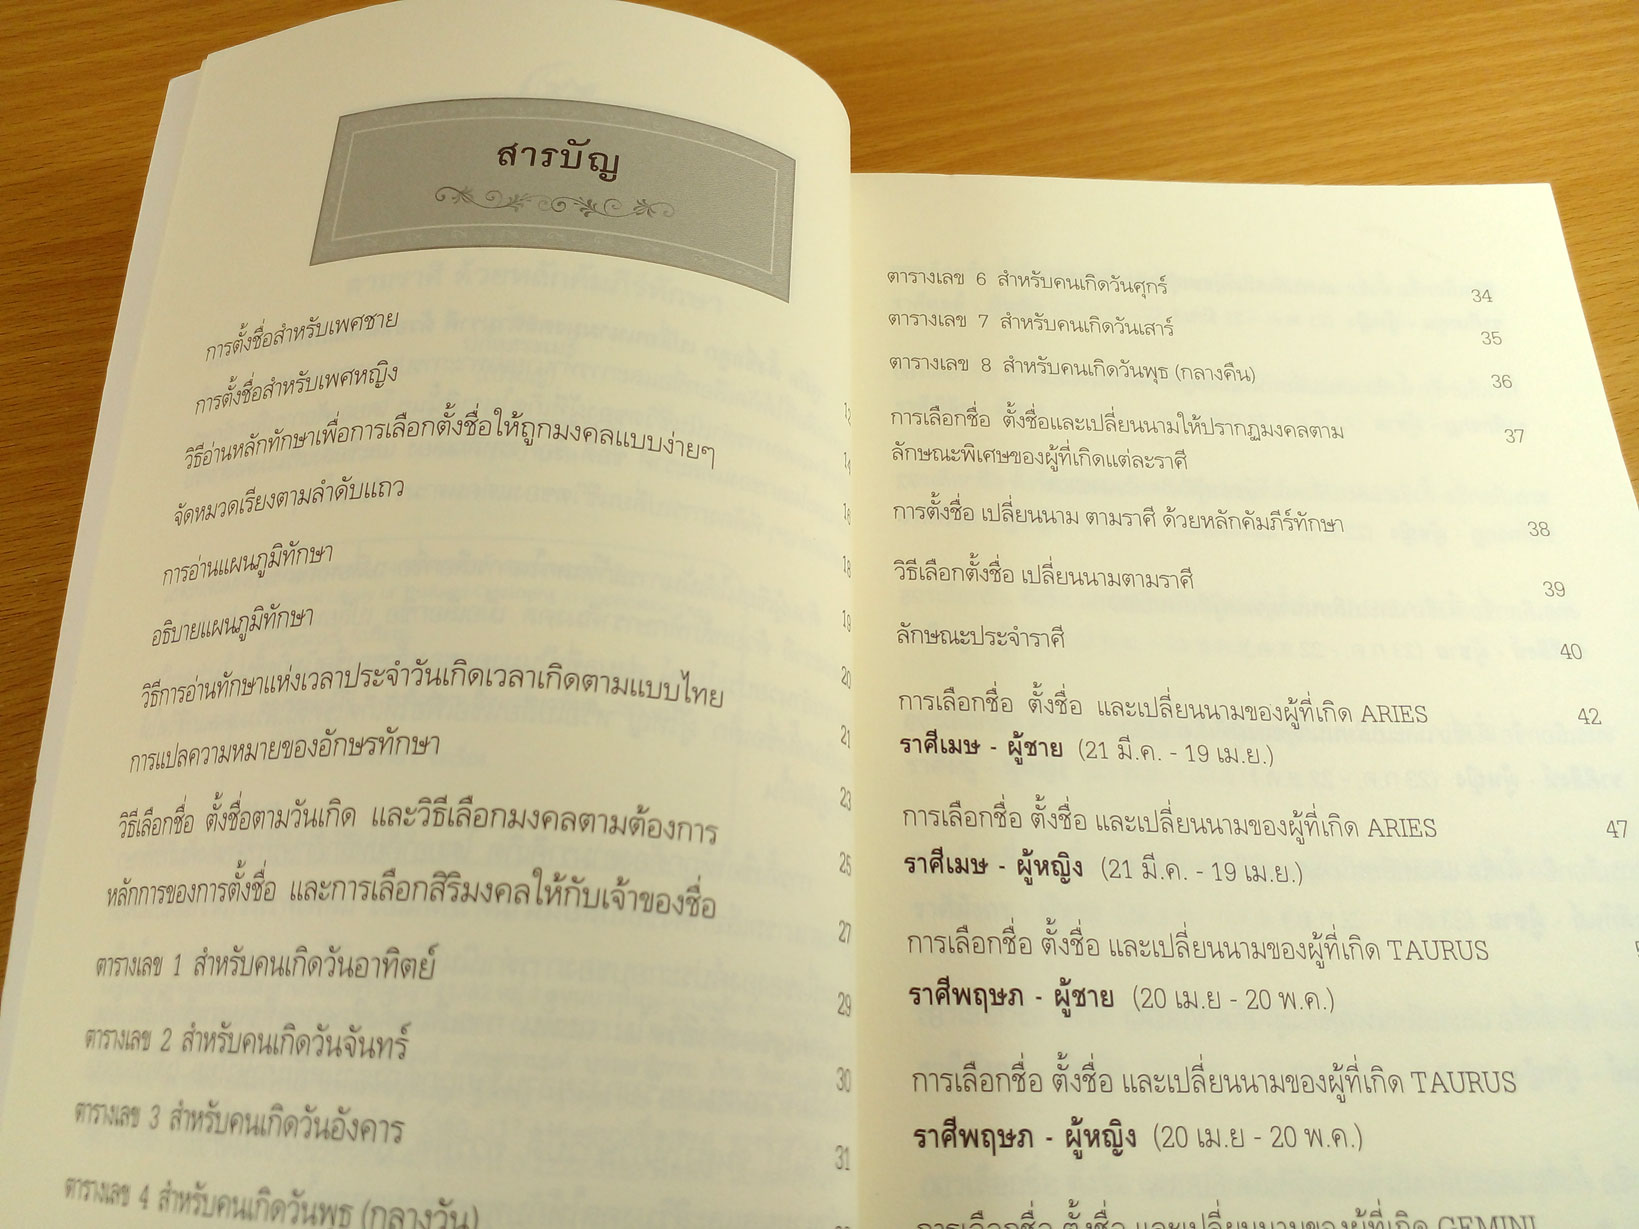 สารบัญ
การตั้งชื่อสำหรับเพศชาย 12
การตั้งชื่อสำหรับเพศหญิง 14
วิธีอ่านหลักทักษาเพื่อการเลือกตั้งชื่อให้ถูกมงคลแบบง่ายๆ 16
จัดหมวดเรียงตามลำดับแถว 18
การอ่านแผนภูมิทักษา 19
อธิบายแผนภูมิทักษา 20
วิธีการอ่านทักษาแห่งเวลาประจำวันเกิดเวลาเกิดตามแบบไทย 21
การแปลความหมายของอักษรทักษา 23
วิธีเลือกชื่อ ตั้งชื่อตามวันเกิด และวิธีเลือกมงคลตามต้องการ 25
หลักการของการตั้งชื่อ และการเลือกสิริมงคลให้กับเจ้าของชื่อ 27
ตารางเลข 1 สำหรับคนเกิดวันอาทิตย์ 29
ตารางเลข 2 สำหรับคนเกิดวันจันทร์ 30
ตารางเลข 3 สำหรับคนเกิดวันอังคาร 31
ตารางเลข 4 สำหรับคนเกิดวันพุธ (กลางวัน)
ตารางเลข 6 สำหรับคนเกิดวันศุกร์ 34
ตารางเลข 7 สำหรับคนเกิดวันเสาร์ 35
ตารางเลข 8 สำหรับคนเกิดวันพุธ (กลางคืน) 36
การเลือกชื่อ ตั้งชื่อและเปลี่ยนนามให้ปรากฏมงคลตาม 37
ลักษณะพิเศษของผู้ที่เกิดแต่ละราศี
การตั้งชื่อ เปลี่ยนนาม ตามราศี ด้วยหลักคัมภีร์ทักษา 38
วิธีเลือกตั้งชื่อ เปลี่ยนนามตามราศี 39
ลักษณะประจำราศี 40
การเลือกชื่อ ตั้งชื่อ และเปลี่ยนนามของผู้ที่เกิด ARIES 42
ราศีเมษ - ผู้ชาย (21 มี.ค. - 19 เม.ย.)
การเลือกชื่อ ตั้งชื่อ และเปลี่ยนนามของผู้ที่เกิด ARIES 47
ราศีเมษ - ผู้หญิง (21 มี.ค. - 19 เม.ย.)
การเลือกชื่อ ตั้งชื่อ และเปลี่ยนนามของผู้ที่เกิด TAURUS
ราศีพฤษภ - ผู้ชาย (20 เม.ย - 20 พ.ค.)
การเลือกชื่อ ตั้งชื่อ และเปลี่ยนนามของผู้ที่เกิด TAURUS
ราศีพฤษภ - ผู้หญิง (20 เม.ย - 20 พ.ค.)
การเลือกชื่อ ตั้งชื่อ และเปลี่ยนนามของผู้ที่เกิด GEMINI